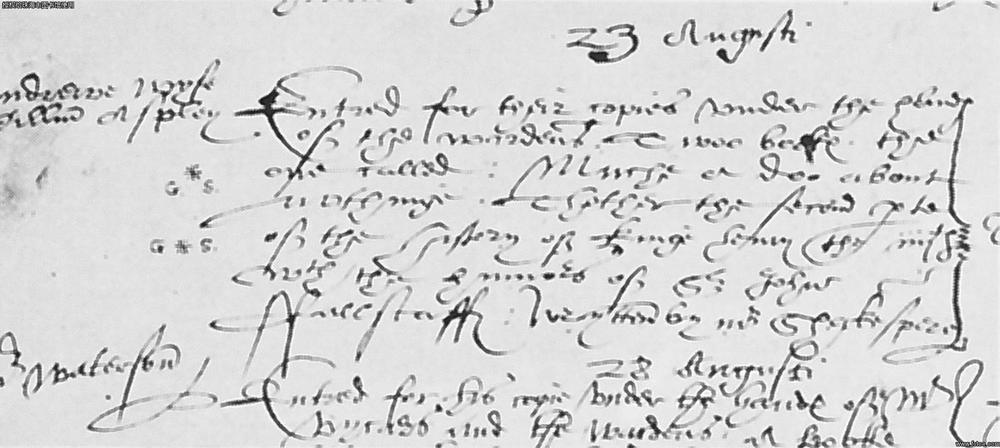 23 Augusti
Andrewe Wyse
William Aspley
Entred for their copies vnder the handes
of the wardens. Twoo bookes. the
one called: Muche a doo about
G * S.
nothinge. Thother the second pte
of the history of kinge henry the iiijth
G * S.
wth the humors of Sr John
ffallstaff: Wrytten by mr Shakespere
28 Augusti
Waterson
Entred for his copie vnder the handes of Mr
and the wardens. A booke
www.fotoe.com